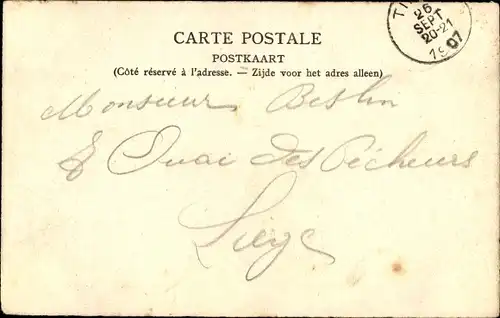 26
SEPT
20-21
1907
CARTE POSTALE
POSTKAART
(Côté réservé à l'adresse. — Zijde voor het adres alleen)
Monsieur
Quai des Pêcheurs
Liége